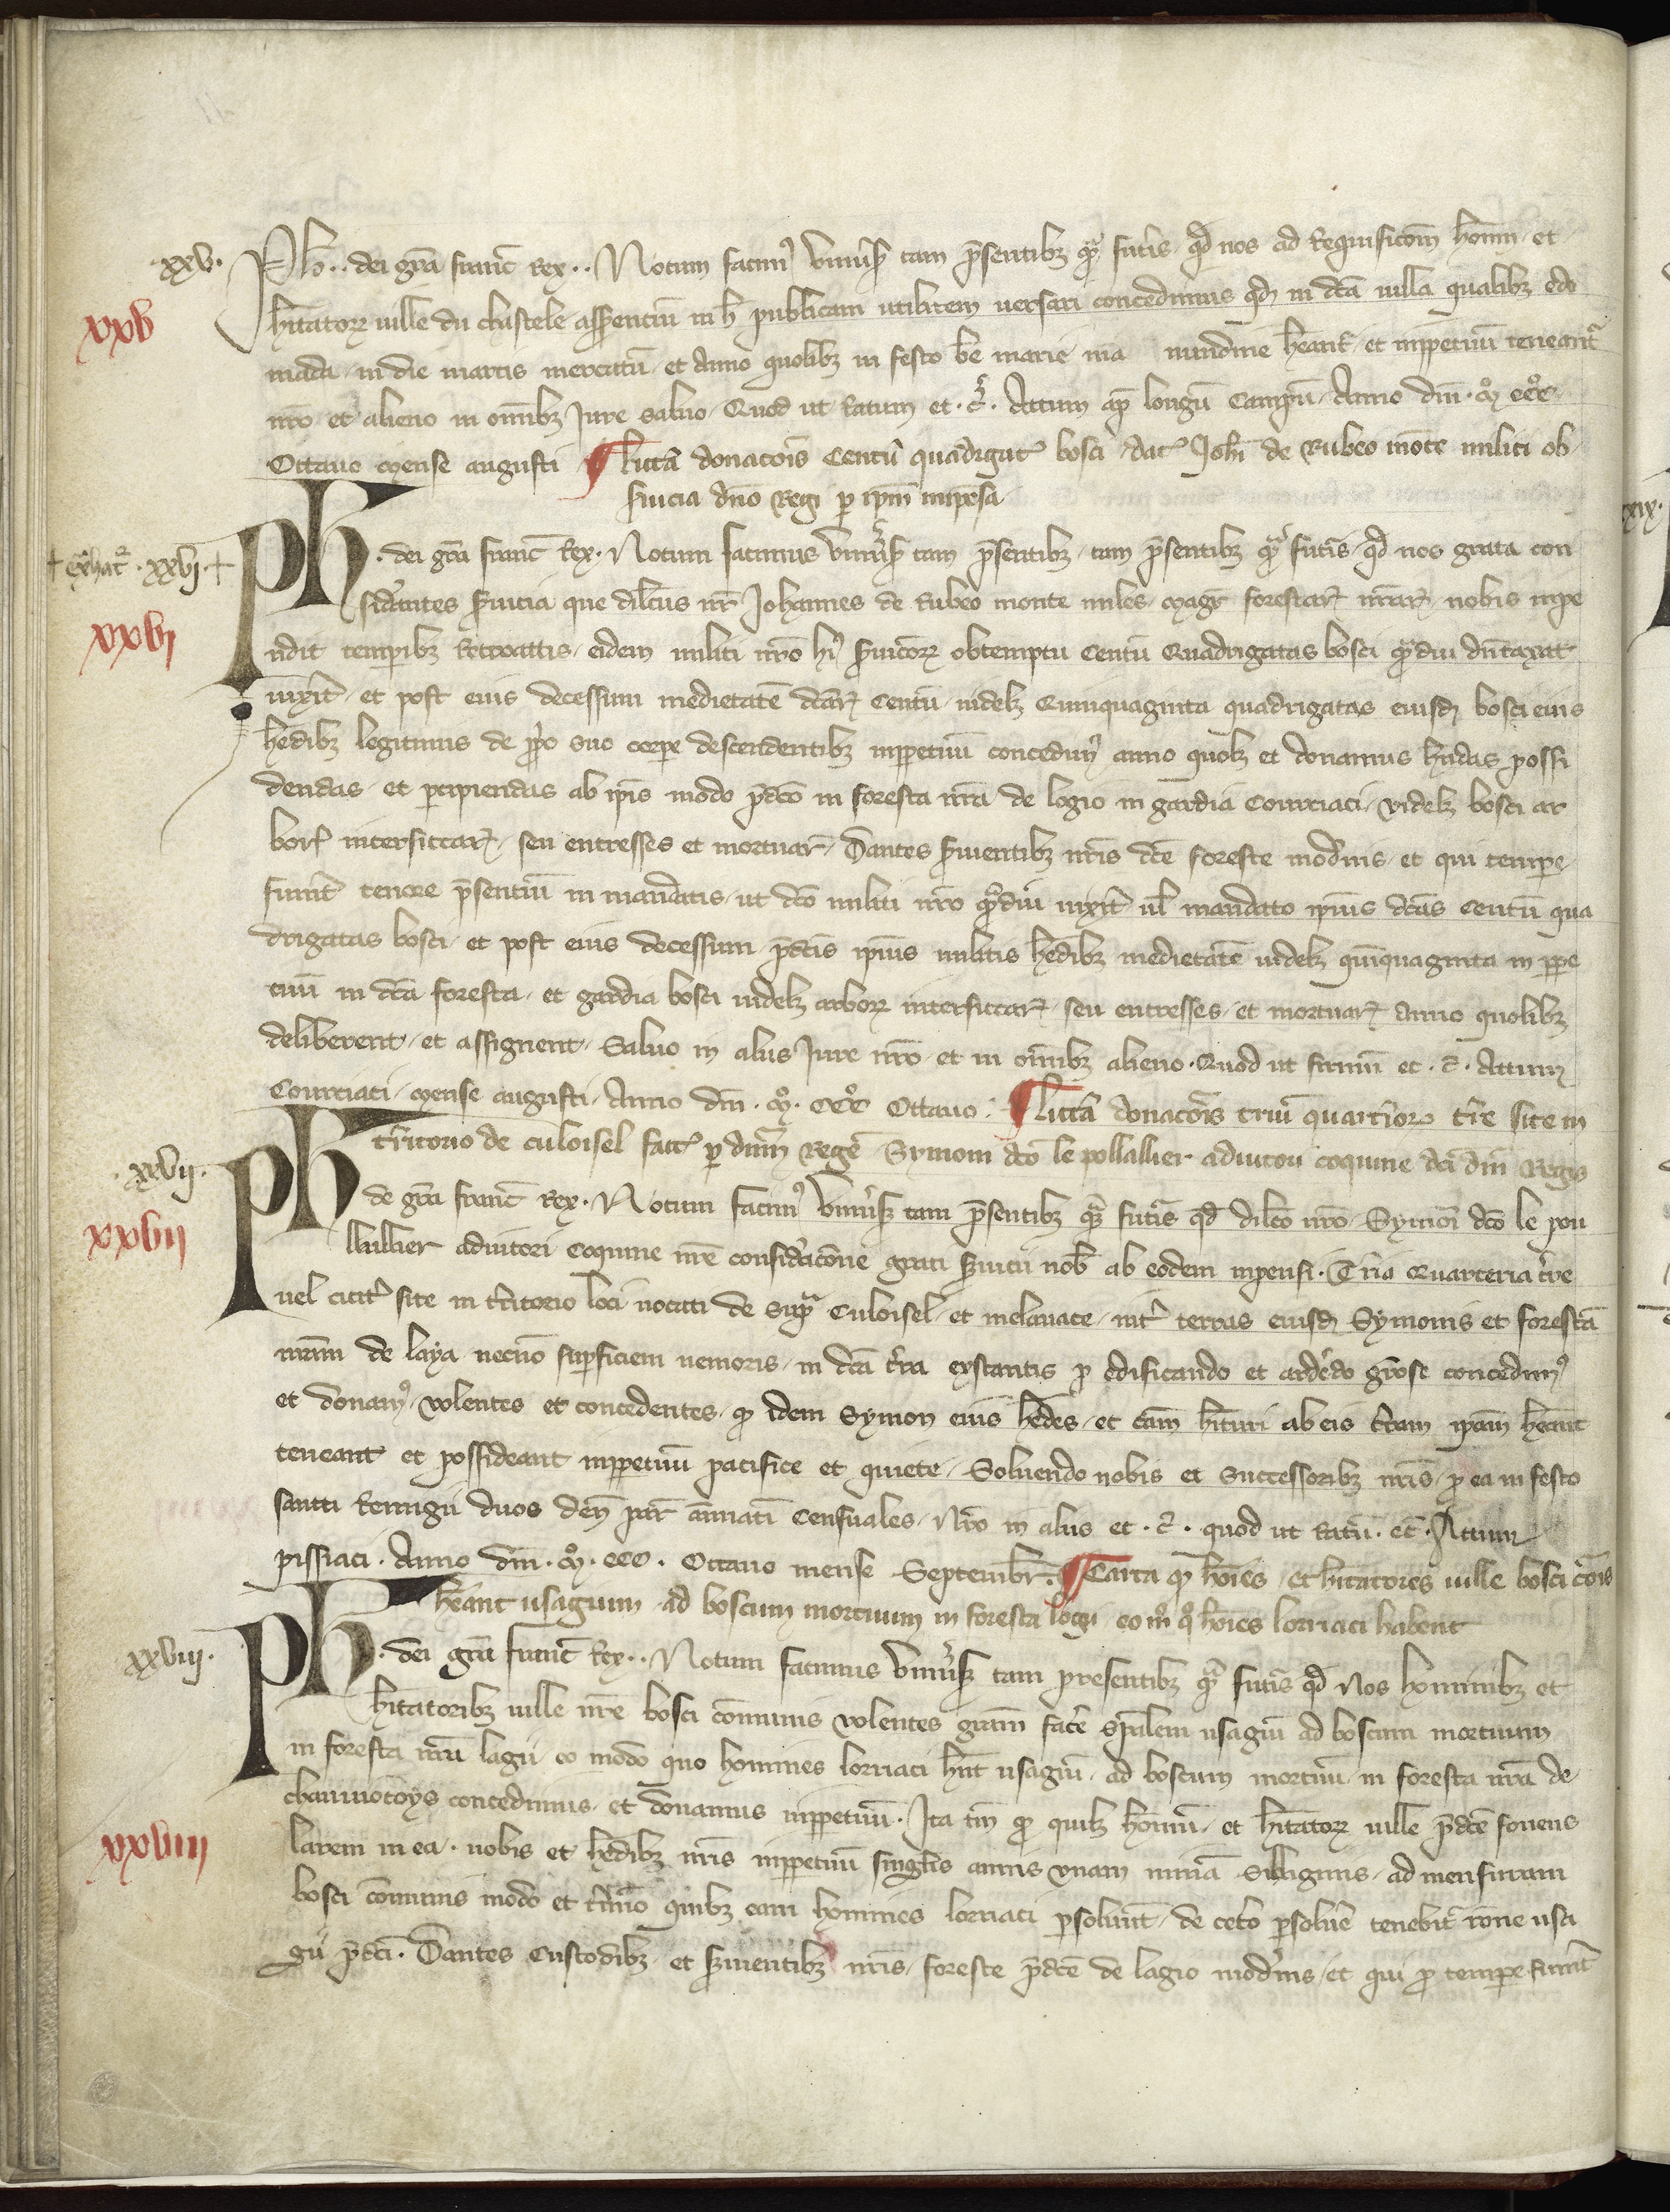 .xxv. Ph̅.. dei gr̅a franc̅ Rex.. Notum facim9 vniu̅s̅ tam p̅sentib3 qua̅ futr̅is qd̅ nos ad Requisic̅om̅ homi̅n et
xxv
hi̅tatoꝝ ville du chastele asse̅renciu̅ in h̅ publicam utilit̅em uersari concedimus qd̅ in dc̅a uilla qualib3 edo
mada in die martis mercatu̅ et Anno quolib3 in festo be̅ marie ma nundine he̅ant̅ et inp̅petuu̅ teneant̅
nr̅o et alieno in om̅ib3 Jure saluo Quod ut Ratum et .c̅. Actum ap̅ longu̅ Campu̅ Anno dn̅i .M̊ ccc̊.
Octauo mense augusti ¶ Litt̅a donac̅ois Centu̅ quadrigat̅ bosci dat̅ Joh̅i de Rubeo mo̅te militi ob
s̅uicia dn̅o Regi p̅ ip̅m inpe̅sa
+ exhat̅ . xxvj + Ph̅. dei gr̅a franc̅ Rex. Notum facimus vniu̅s̅ tam p̅sentib3 tam p̅sentib3 qua̅ futis̅ qd̅ nos grata con
xxvj
sid̅antes s̅uicia que dil̅cus nr̅ Johannes de Rubeo monte miles magr̅ forestaꝝ nr̅aꝝ nobis inpe
ndit tempib3 Retroactis eidem militi nr̅o hi̅ s̅uicioꝝ obtemptu Centu̅ Quadrigatas bosci qua̅diu du̅taxat
vixit̅ et post eius decessum medietate̅ dc̅aꝝ Centu̅ videl3 Quinquaginta quadrigatas eiusd̅ bosci eius
he̅dib3 legitimis de pp̅o suo corpe descendentib3 inp̅petuu̅ concedim9 anno quol3 et donamus he̅ndas possi
dendas et percipiendas ab ip̅is modo p̅dc̅o in foresta nr̅a de logio in gardia Courciaci videl3 bosci ar
boꝝ intersiccaꝝ seu entresses et mortuar̅ Dantes s̅uientib3 nr̅is dc̅e foreste mod̅nis et qui tempe
fuerint̅ tenore p̅sentiu̅ in mandatis ut dc̅o militi nr̅o qua̅diu vixit̅ ul̅ mandato ip̅ius dc̅as Centu̅ qua
drigatas bosci et post eius decessum p̅dc̅is ip̅ius militis he̅dib3 medietate̅ videl3 qui̅nquaginta in ppe
tuu̅ in dc̅a foresta et gardia bosci videl3 arboꝝ intersiccaꝝ seu entresses et mortuaꝝ anno quolib3
deliberent et assignent Saluo in aliis Jure nr̅o et in om̅ib3 alieno. Quod ut firmu̅ et .c̅. Actum
Courciaci mense augusti Anno dn̅i .M̊. CCC̊ Octauo. ¶ Litt̅a donac̅ois triu̅ quart̅ioꝝ t̅re site in
t̅ritorio de culoisel fact̅ p̅ dn̅m Rege̅ Symoni dc̅o le pollallier adiutori coquine dc̅i dn̅i Regis
.xxvij. Ph̅ de gr̅a franc̅ Rex. Notum facim9 vniu̅s̅ tam p̅sentib3 qua̅ futis̅ qd̅ dilc̅o nr̅o Symo̅i dc̅o le pou
xxvij
llallier adiutori Coquine nr̅e consid̅ac̅one grati s̅uicii nob̅ ab eodem inpensi. Tria Quarteria t̅re
uel circit̅ site in t̅ritorio loci uocati de Sup̅ Culoisel et melauace int̅ terras eiusd̅ Symonis et foresta̅
nr̅am de laya necno̅ sup̅ficiem nemoris in dc̅a t̅ra exstantis p̅ edificando et arde̅do grose concedim9
et donam9 volentes et concedentes qd̅ idem Symon eius he̅des et cam̅ hi̅turi ab eis t̅ram ip̅am he̅ant
teneant et possideant inp̅petuu̅ pacifice et quiete. Soluendo nobis et Successorib3 nr̅is p̅ ea in festo
sancti Remigii duos den̅ par̅ annati̅ Censuales Nr̅o in aliis et .c̅. quod ut Ratu̅. etc̅. Actum
pissiaci. Anno dn̅i .M̊. CCC. Octauo mense Septembr̅. ¶ Carta qd̅ ho̅ies et hi̅tatores uille bosci co̅is
he̅ant usagium ad boscum mortuum in foresta logii eo mo̊ qo̊ ho̅ies lorriaci habent
xxviij. Ph̅. dei gr̅a franc̅ Rex.. Notum facimus vniu̅s̅ tam presentib3 qua̅ futis̅ qd̅ Nos hominib3 et
hi̅tatorib3 uille nr̅e bosci co̅munis volentes gr̅am fac̅e sp̅alem usagiu̅ ad boscum mortuum
in foresta nr̅a lagii eo modo quo homines lorriaci hn̅t usagiu̅ ad boscum mortuu̅ in foresta nr̅a de
chaumotoys concedimus et donamus inp̅petuu̅. Ita tn̅ qd̅ quil3 homi̅nu̅ et hi̅tatoꝝ uille p̅dc̅e fouens
xxviij
larem in ea. nobis et he̅dib3 nr̅is inp̅petuu̅ singl̅is annis vnam mina̅ Siliginis ad mensuram
bosci co̅munis modo et t̅mi̅o quib3 eam homines lorriaci p̅soluu̅t de cet̅o p̅solu̅e tenebit̅ ro̅ne usa
gii p̅dc̅i. Dantes Custodib3 et s̅uientib3 nr̅is foreste p̅dc̅e de lagio mod̅nis et qui p̅ tempe fuerint̅